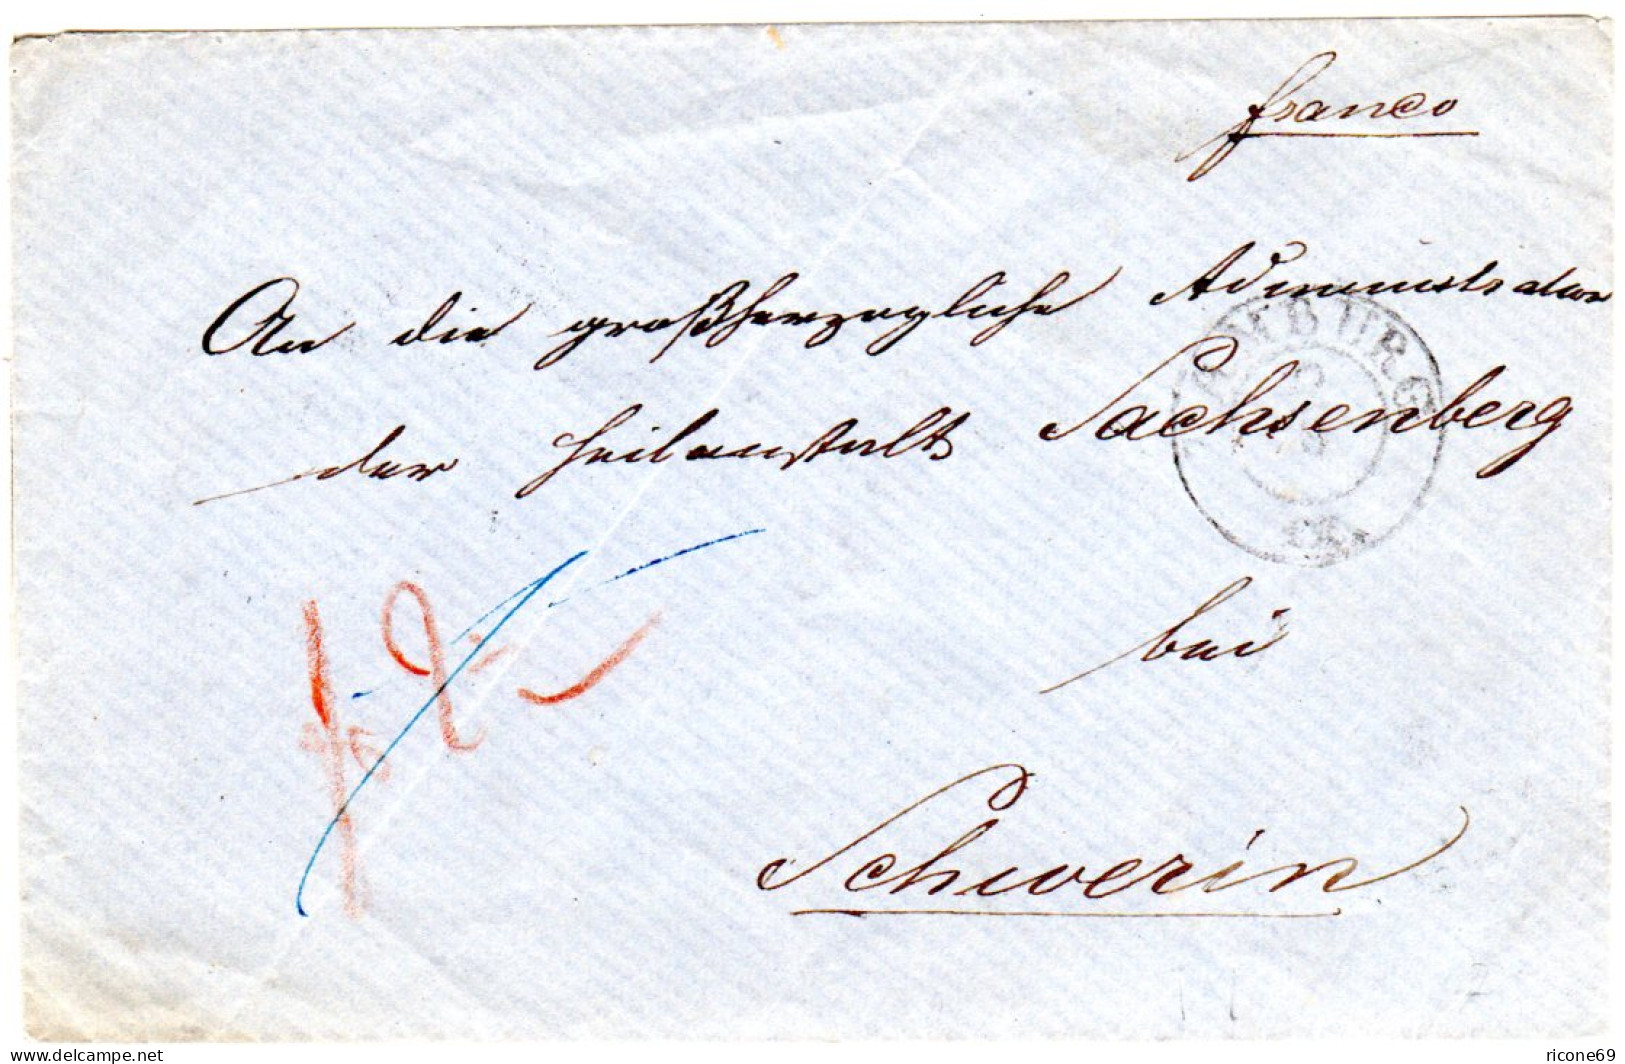 franco
An die großherzogliche Administration
der Heilanstalt Sachsenberg
HAMBURG
bei
Schwerin
www.delcampe.net
ricone69